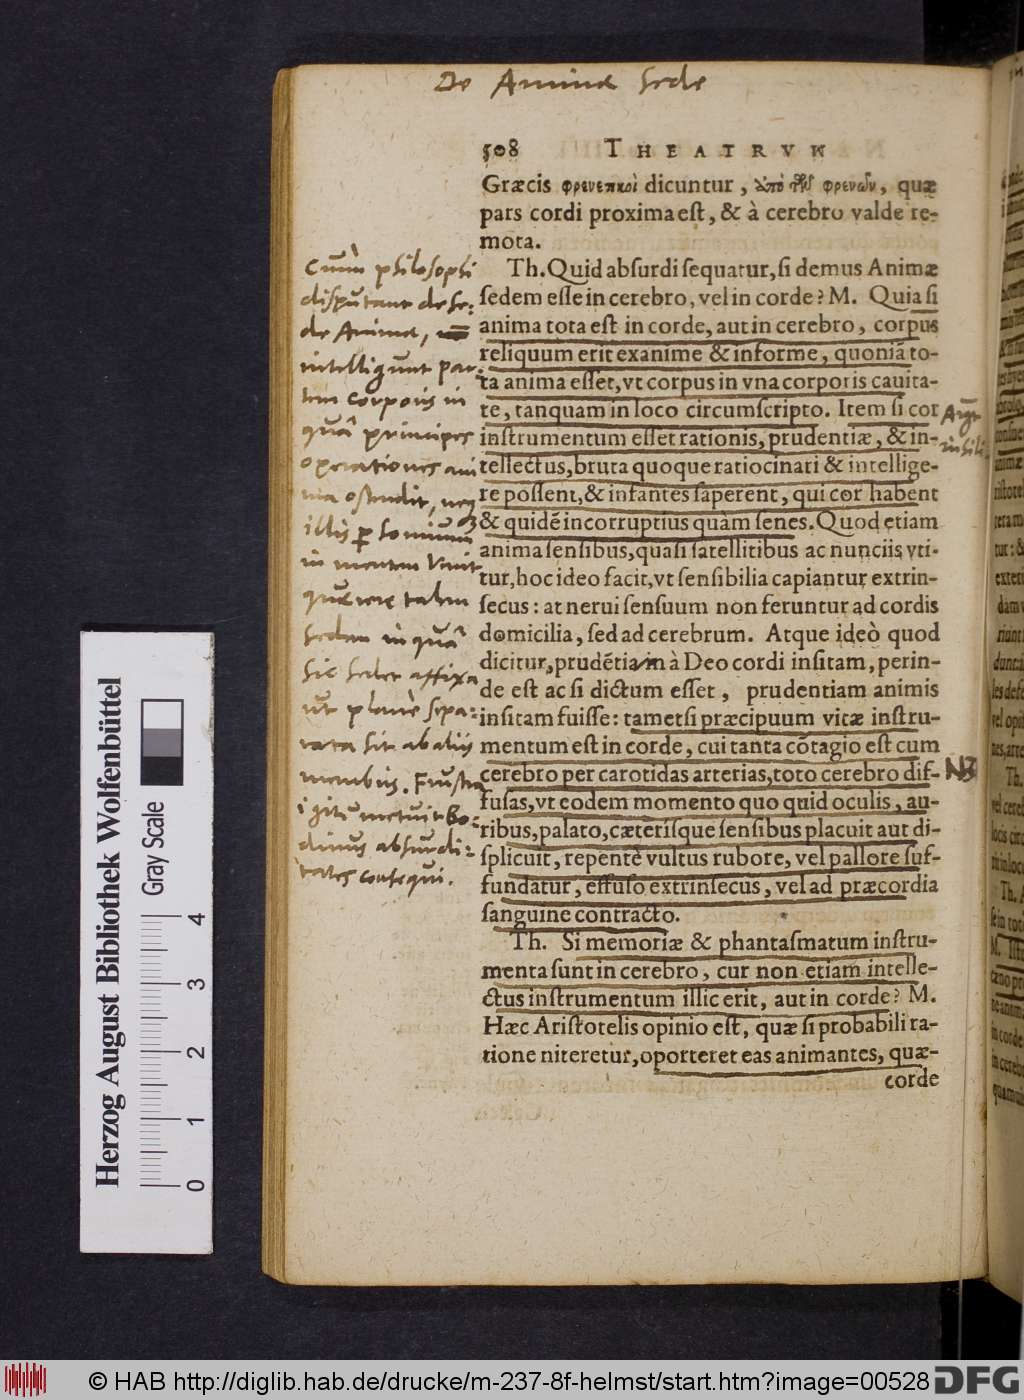 De Animæ sede
508 THEATRVM
Græcis φρενετικοὶ dicuntur, ἀπὸ τῶν φρενῶν, quæ
pars cordi proxima est, & à cerebro valde re-
mota.
Th. Quid absurdi sequatur, si demus Animæ
sedem esse in cerebro, vel in corde? M. Quia si
anima tota est in corde, aut in cerebro, corpus
reliquum erit exanime & informe, quoniã to-
ta anima esset, vt corpus in vna corporis cauita-
te, tanquam in loco circumscripto. Item si cor
instrumentum esset rationis, prudentiæ, & in-
tellectus, bruta quoque ratiocinari & intellige-
re possent, & infantes saperent, qui cor habent
& quidẽ incorruptius quàm senes. Quod etiam
anima sensibus, quasi satellitibus ac nunciis vti-
tur, hoc ideo facit, vt sensibilia capiantur extrin-
secus: at nerui sensuum non feruntur ad cordis
domicilia, sed ad cerebrum. Atque ideò quod
dicitur, prudẽtiam à Deo cordi insitam, perin-
de est ac si dictum esset, prudentiam animis
insitam fuisse: tametsi præcipuum vitæ instru-
mentum est in corde, cui tanta cõtagio est cum
cerebro per carotidas arterias, toto cerebro dif-
fusas, vt eodem momento quo quid oculis, au-
ribus, palato, cæterisque sensibus placuit aut di-
splicuit, repentè vultus rubore, vel pallore suf-
fundatur, effuso extrinsecus, vel ad præcordia
sanguine contracto.
Th. Si memoriæ & phantasmatum instru-
menta sunt in cerebro, cur non etiam intelle-
ctus instrumentum illic erit, aut in corde? M.
Hæc Aristotelis opinio est, quæ si probabili ra-
tione niteretur, oporteret eas animantes, quæ-
corde
Cum philosophi
disputant de se-
de Animæ,
intelligunt par-
tem corporis in
quâ principes
operationes ani
ma ostendit, neq
illis per somnium
in mentem venit
quærere talem
sedem in quâ
sic sedet affixa
ut planè sepa-
rata sit ab aliis
membris. Frustra
igitur metuit Bo-
dinus absurdi-
tates consequi.
NB
Herzog August Bibliothek Wolfenbüttel
Gray Scale
0 1 2 3 4
© HAB http://diglib.hab.de/drucke/m-237-8f-helmst/start.htm?image=00528
DFG